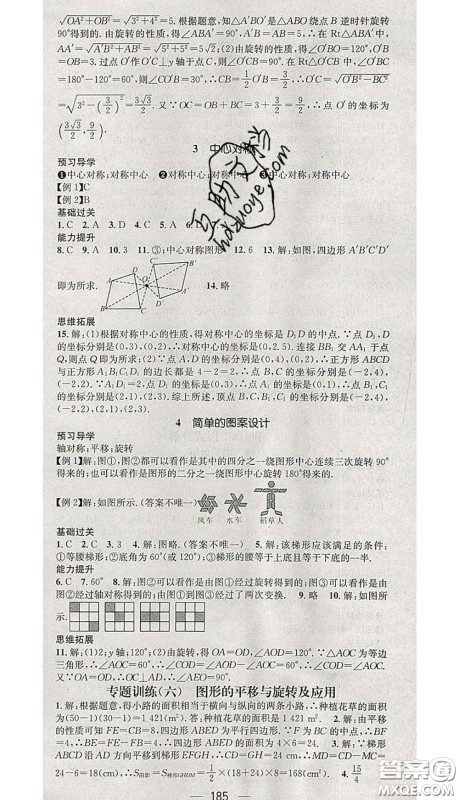 √(O'B²+A'O'²)=√(3²+4²)=5. 根据题意,知△A'BO'是△ABO绕点B逆时针旋转
90°得到的. 由旋转的性质,得∠ABA'=90°,A'B=AB=5. ∴在Rt△ABA'中,
AA'=√(A'B²+AB²)=√(5²+5²)=5√2;(2)由旋转的性质,得∠O'BO=120°,O'B
=OB=3. 过点O'作O'C⊥y轴于点C,则∠O'CB=90°. 在Rt△O'BC中,∠O'BC
=180°-120°=60°,∴∠BO'C=30°. ∴BC=1/2 O'B=3/2. ∴O'C=√(O'B²-BC²)
=√(3²-(3/2)²)=3√3/2. 又∵OC=OB+BC=3+3/2=9/2,∴点O'的坐标为
(3√3/2,9/2).
3 中心对称
预习导学
❶中心对称;对称中心 ❷对称中心;对称中心 ❸中心对称;对称中心
【例1】C
【例2】B
基础过关
1. C 2. A 3. D 4. C
能力提升
8. C 9. A 10. 3 11. ③;中心对称图形 12. 6 13. 解:如图,四边形A'B'C'D'
即为所求. 14. 略
思维拓展
15. 解:(1)根据对称中心的性质,得对称中心的坐标是D₁D的中点. ∵点D₁,D
的坐标分别是(0,3),(0,2),∴对称中心的坐标是(0,2.5). 连接BB₁交AA₁于点
Q,则点Q即为所求;(2)∵点A,D的坐标分别是(0,4),(0,2),∴正方形ABCD
与正方形A₁B₁C₁D₁的边长都是4-2=2. ∴点B,C的坐标分别是(-2,4),
(-2,2). ∵正方形A₁B₁C₁D₁的边长是2,点D₁的坐标是(0,3),∴点A₁的坐标
是(0,1). ∴点B₁,C₁的坐标分别是(2,1),(2,3). 综上所述,顶点B,C,B₁,C₁的坐标分别是(-2,4),
(-2,2),(2,1),(2,3).
4 简单的图案设计
预习导学
轴对称;平移;旋转
【例1】解:图①,图②都可以看作是其中的四分之一绕图形中心连续三次旋转90°
得来的. 图②也可以看作是其中的二分之一绕图形中心旋转180°得来的.
【例2】解:如图所示.(答案不唯一)
风车 水车 稻草人
基础过关
1. C 2. C 3. 3 4. 解:图略.(答案不唯一) 5. 解:该梯形应该满足的条件:
①等腰梯形;②底角为60°(或120°);③梯形的腰等于上底且等于下底的一半.
能力提升
6. C 7. 60° 8. 解:图②可以看作是由图①通过旋转得到的;图③可以看作是由图
②通过轴对称得到的;图③可以看作是由图①经过了两次变换. 9. 略 10. 解:如图所
示.
思维拓展
11. 解:(1)2;y轴;120°;(2)由旋转,得OA=OD,∠AOD=120°. ∵△AOC为等边
三角形,∴∠AOC=60°. ∴∠COD=∠AOD-∠AOC=60°. ∴∠AOC=∠COD.
又∵OA=OD,∴OC⊥AD. ∴∠AEO=90°.
专题训练(六) 图形的平移与旋转及应用
1. 解:根据题意,得小路的面积相当于横向与纵向的两条小路,∴种植花草的面积
为(50-1)(30-1)=1 421(m²). 答:种植花草的面积是1 421 m². 2. 解:由平移
的性质可知FE=CB=8,四边形ABED为平行四边形. ∴BE=AD=4. ∵BF=
BE=4,∴FE⊥BC. ∴四边形ABED的面积为4×6=24. 3. 解:∵梯形
ABCD沿AD方向平移到梯形EFGH,∴HG=CD=24. ∴MD=CD-MC=
24-6=18(cm). ∴S阴影=S梯形GHDM=1/2×(18+24)×8=168(cm²). 4. 15/4
185
互助文学
hdzuoye.com